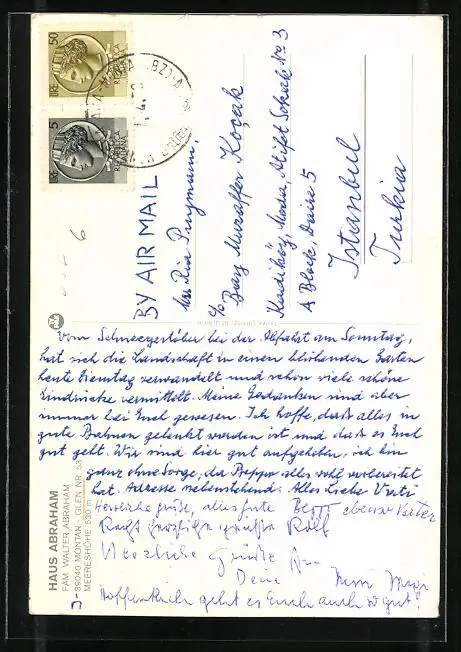 LIRE 50
REPUBBLICA ITALIANA
LIRE 5
REPUBBLICA ITALIANA
BY AIR MAIL
Mrs Ria
c/o
Bay Muzaffer Koçak
Kadıköy, Moda, Sokak No 3
A Block, Daire 5
Istanbul
Turkia
Vom Schneegestöber bei der Abfahrt am Sonntag,
hat sich die Landschaft in einen blühenden Garten
heute Dienstag verwandelt und schon viele schöne
Eindrücke vermittelt. Meine Gedanken sind aber
immer bei Euch gewesen. Ich hoffe, daß alles in
gute Bahnen gelenkt worden ist und daß es Euch
gut geht. Wir sind hier gut aufgehoben, ich bin
ganz ohne Sorge, da alles wohl vorbereitet
hat. Adresse nebenstehend. Alles Liebe Vati
Herzliche Grüße, alles Gute
Recht herzlich grüßt Rolf
Herzliche Grüße
Deine
Hoffentlich geht es Euch auch so gut!
HAUS ABRAHAM
FAM. WALTER ABRAHAM
J-39040 MONTAN - GLEN NR. 53
MEERESHÖHE 530 m